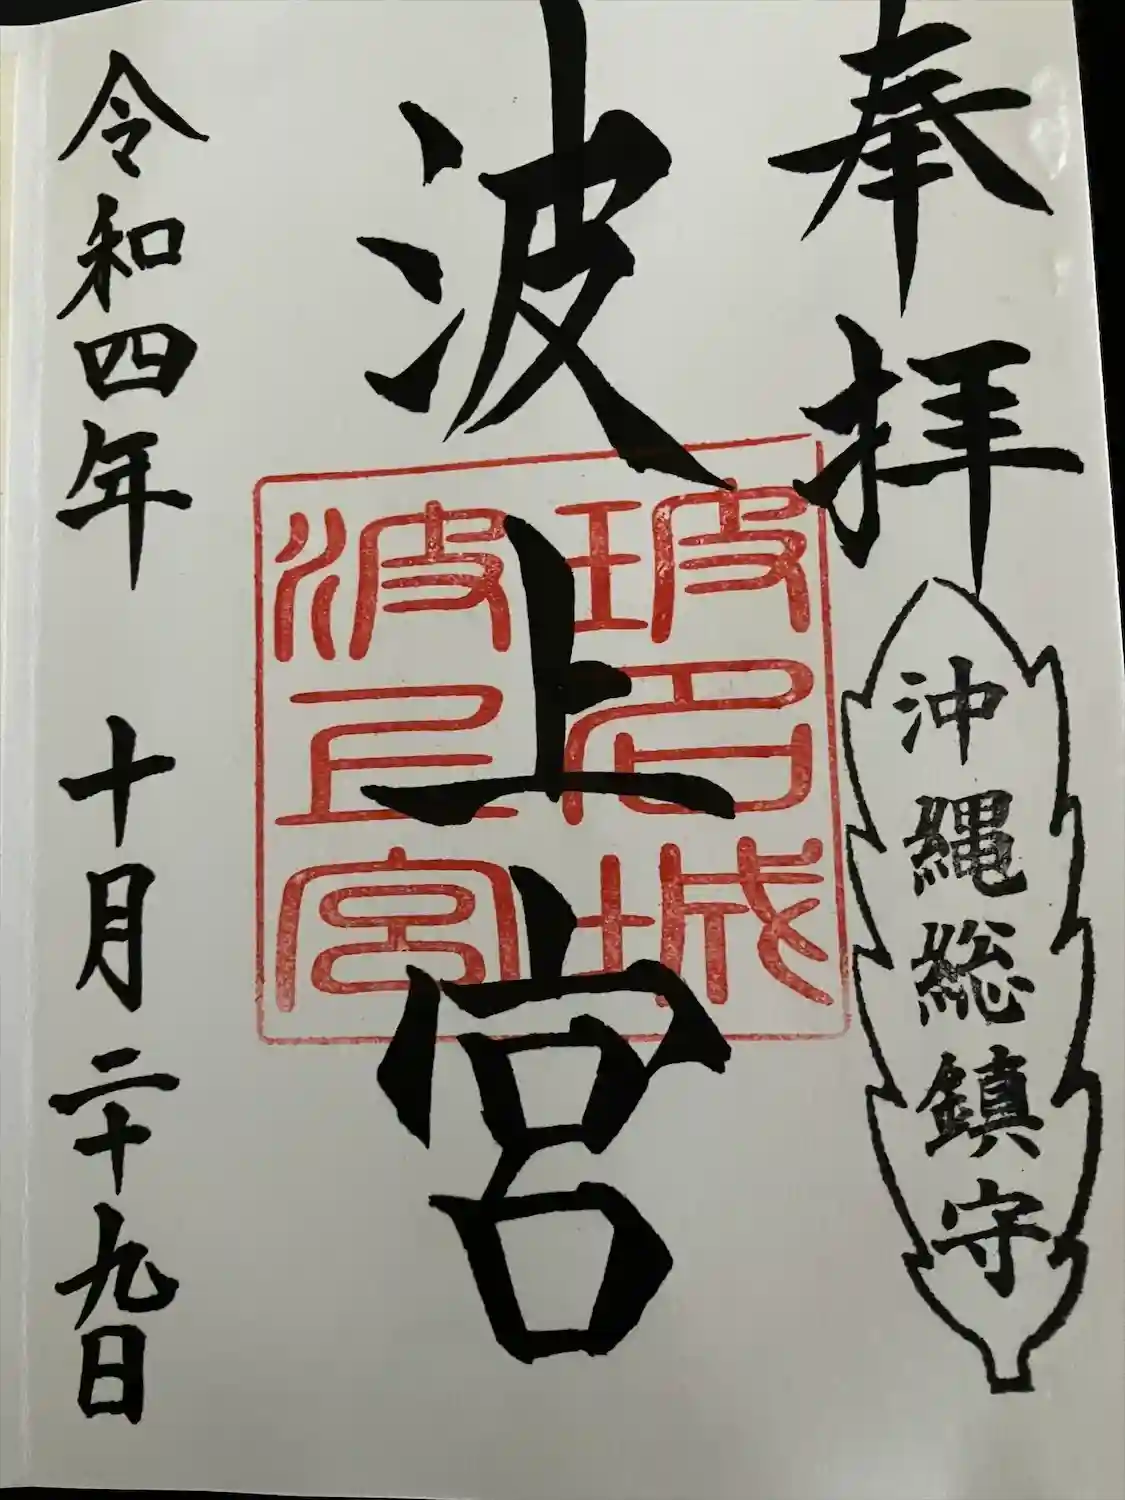 奉拝
沖縄総鎮守
波上宮
玻名城
波上宮
令和四年 十月二十九日